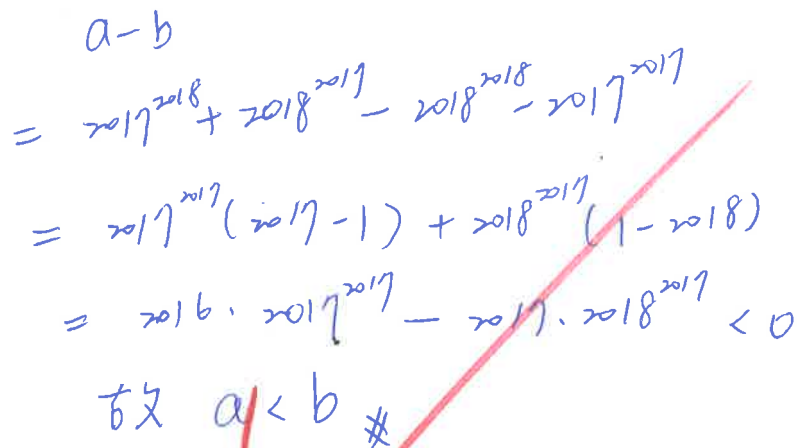 a-b
= 2017^2018 + 2018^2017 - 2018^2018 - 2017^2017
= 2017^2017 (2017-1) + 2018^2017 (1-2018)
= 2016 · 2017^2017 - 2017 · 2018^2017 < 0
故 a < b #